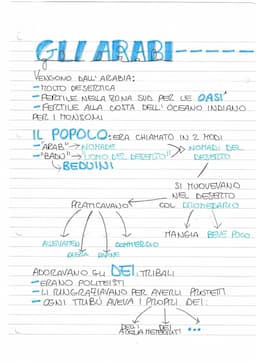 GLI ARABI
VENGONO DALL'ARABIA:
- MOLTO DESERTICA
- FERTILE NELLA ZONA SUD PER LE OASI
- FERTILE ALLA COSTA DELL'OCEANO INDIANO
PER I MONSONI
IL POPOLO: ERA CHIAMATO IN 2 MODI
- "ARAB" → NOMADE
- "BADW" → "UOMO DEL DESERTO"
NOMADI DEL
DESERTO
BEDUINI
SI MUOVEVANO
NEL DESERTO
COL DROMEDARIO
PRATICAVANO
ALLEVAMEN
COMMERCIO
MANGIA BEVE POCO
ADORAVANO GLI DEI TRIBALI
- ERANO POLITEISTI
- LI RINGRAZIAVANO PER AVERLI PROTETTI
- OGNI TRIBÙ AVEVA I PROPRI DEI:
DEI
...